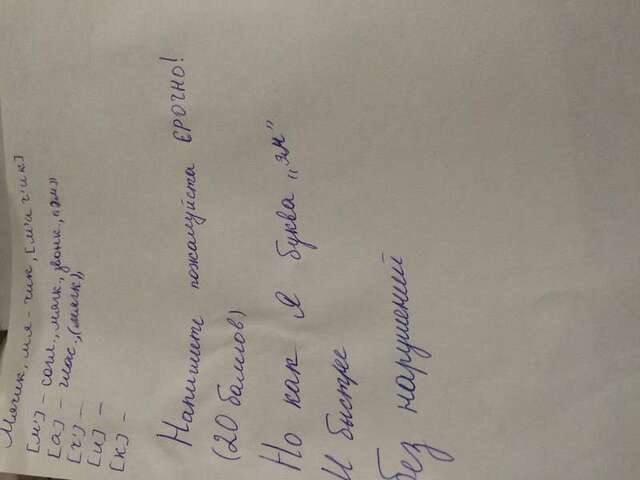 Мячик, мя - чик, [м'а ч'ик]
[м'] - согл., мягк., звонк., "эм"
[а] - глас., (мягк),
[ч'] -
[и] -
[к] -
Напишите пожалуйста СРОЧНО!
(20 баллов)
Но как я буква „эм"
И быстрее
без нарушений